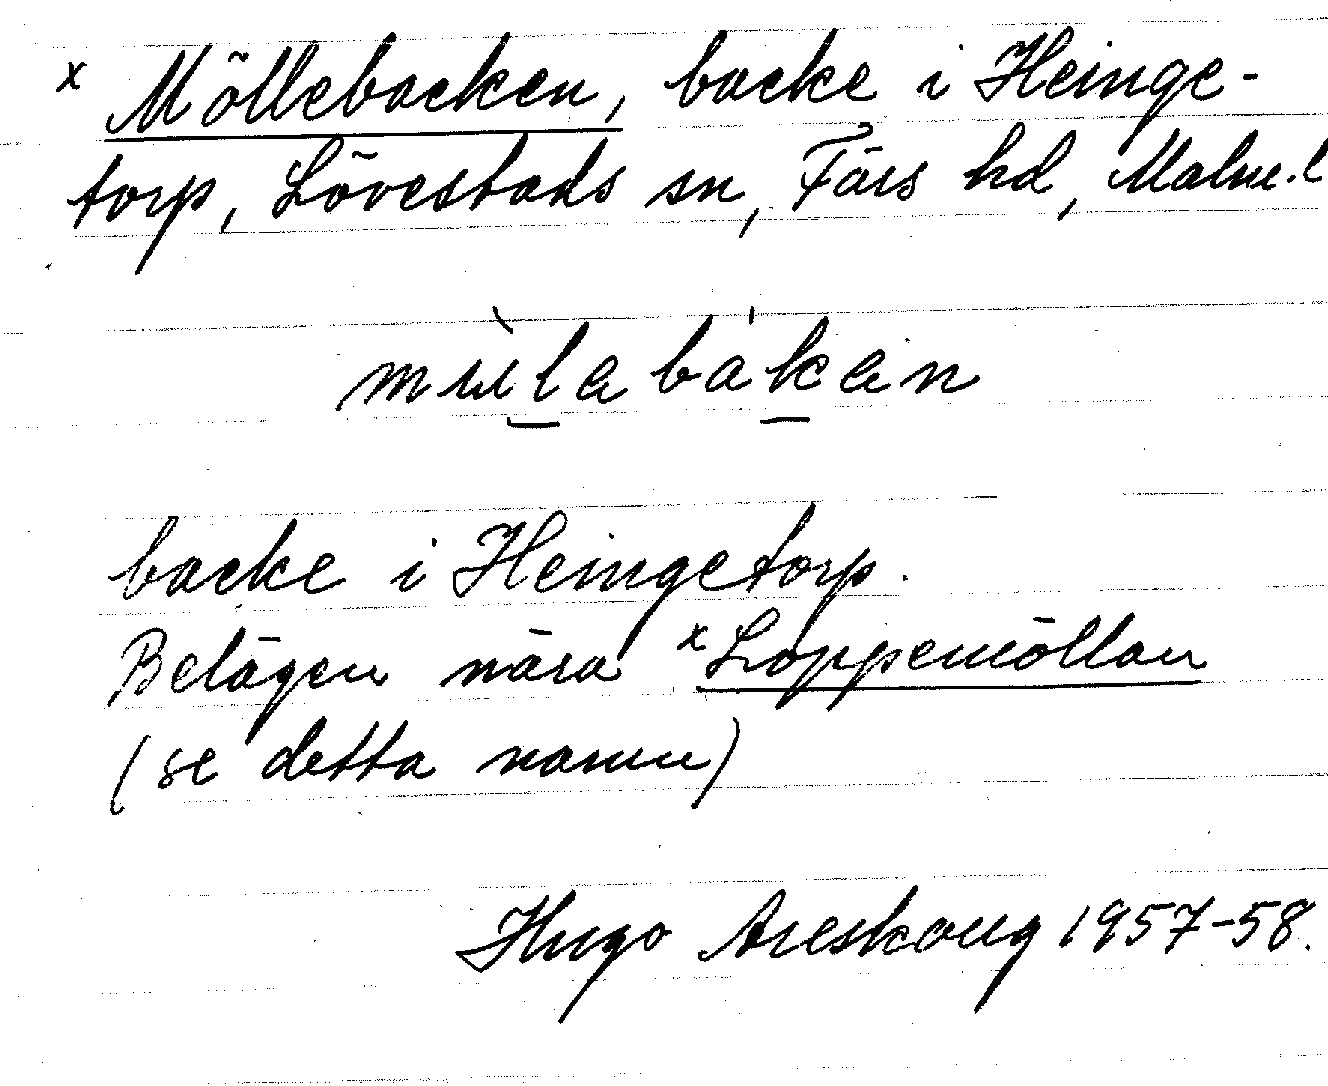 x Möllebacken, backe i Heinge-
torp, Lövestads sn, Färs hd, Malm.l
backe i Heingetorp.
Belägen nära x Loppemöllan
(se detta namn)
Hugo Areskoug 1957-58.